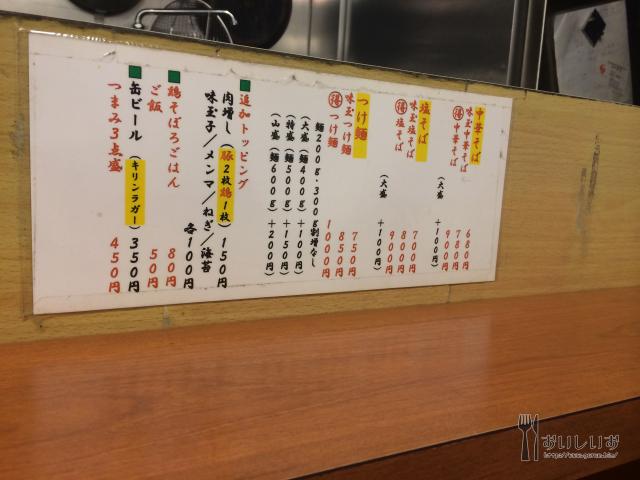 中華そば 680円
味玉中華そば 780円
得中華そば 900円
(大盛 +100円)
塩そば 700円
味玉塩そば 800円
得塩そば 900円
(大盛 +100円)
つけ麺 750円
味玉つけ麺 850円
得つけ麺 1000円
麺200g・300g割増なし
(大盛(麺400g)+100円)
(特盛(麺500g)+150円)
(山盛(麺600g)+200円)
追加トッピング
肉増し(豚2枚鶏1枚)150円
味玉子/メンマ/ねぎ/海苔
各100円
鶏そぼろごはん 80円
ご飯 50円
缶ビール(キリンラガー)350円
つまみ3点盛 450円
おいしいお